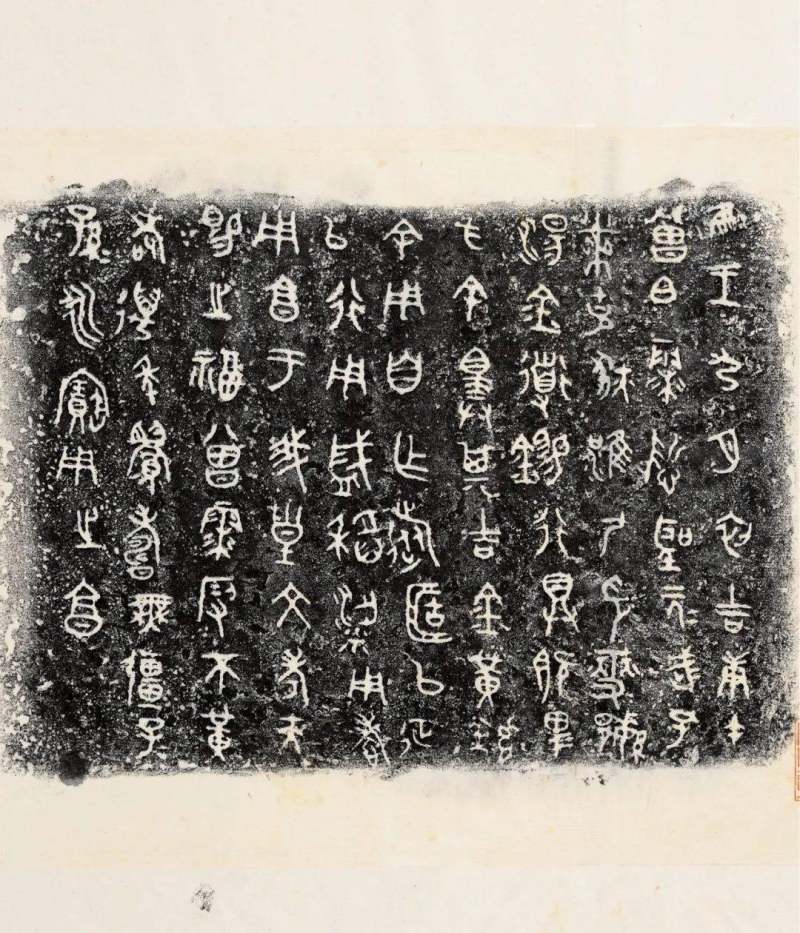 唯王九月初吉庚午
曾白霥哲聖元武孔
黹克狄淮夷印燮繁
湯金道錫行具既卑
方余擇其吉金黃鑪
余用自乍旅簠以征
以行用盛稻粱用孝
用享于我皇文考天
賜之福曾霥叚不黃
耇邁年眉壽無疆子
孫永寶用之享